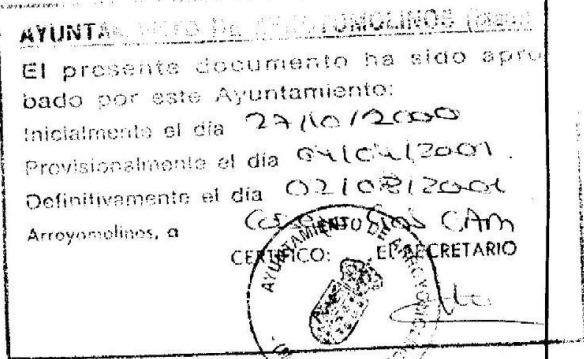 AYUNTAMIENTO DE ARROYOMOLINOS
El presente documento ha sido apro
bado por este Ayuntamiento:
Inicialmente el día 27/10/2000
Provisionalmente el día 04/04/2001.
Definitivamente el día 02/08/2001
Arroyomolinos, a CAM
CERTIFICO: EL SECRETARIO
AYUNTAMIENTO DE ARROYOMOLINOS